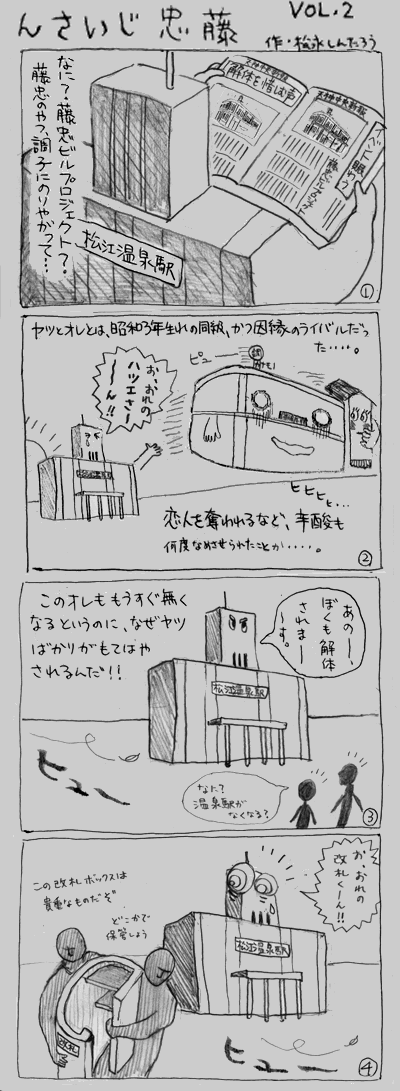 藤忠じいさん
VOL.2
作・松永しんたろう
なに?藤忠ビルプロジェクト?
藤忠のやつ、調子にのりやがって…
解体を惜しむ声
松江温泉駅
①
ヤツとオレとは、昭和3年生れの同級、かつ因縁のライバルだっ
た・・・・。
ピュー
お、おれの
ハツエさ
ーん!!
松江温泉駅
ヒヒヒヒ…
恋人を奪われるなど、辛酸も
何度なめさせられたことか・・・・。
②
このオレももうすぐ無く
なるというのに、なぜヤツ
ばかりがもてはや
されるんだ!!
あのー、
ぼくも解体
されまー
す。
松江温泉駅
ヒュー
なに?
温泉駅が
なくなる?
③
お、おれの
改札くーん!!
この改札ボックスは
貴重なものだぞ
どこかで
保管しよう
松江温泉駅
改札
ヒュー
④